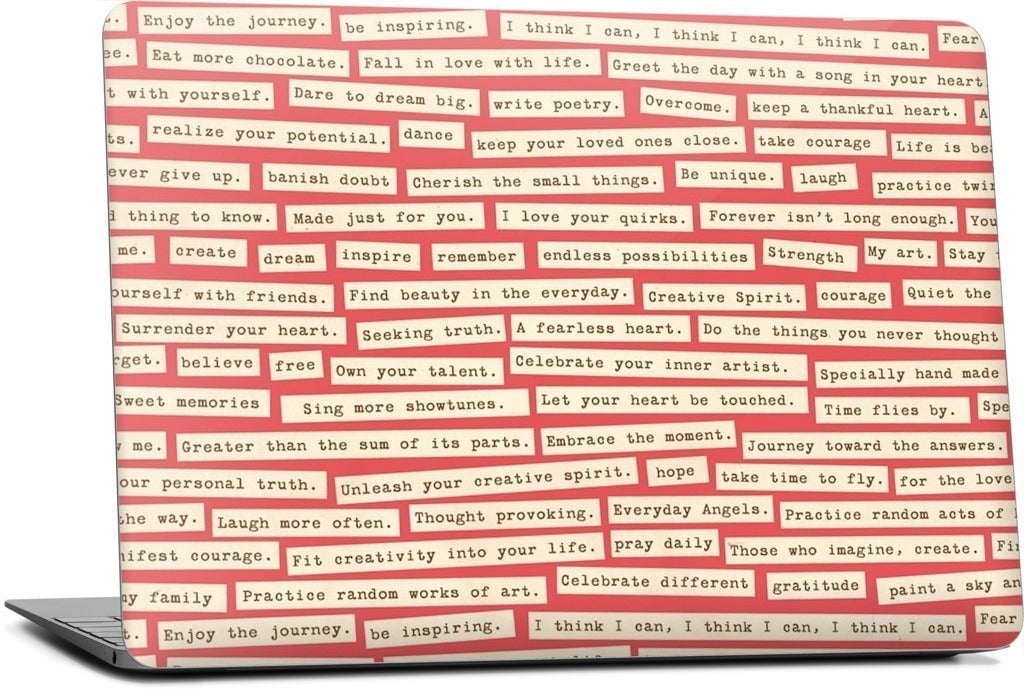 Enjoy the journey. be inspiring. I think I can, I think I can, I think I can. Fear
Eat more chocolate. Fall in love with life. Greet the day with a song in your heart
t with yourself. Dare to dream big. write poetry. Overcome. keep a thankful heart. A
ts. realize your potential. dance keep your loved ones close. take courage Life is bea
ever give up. banish doubt Cherish the small things. Be unique. laugh practice twi
d thing to know. Made just for you. I love your quirks. Forever isn't long enough. You
me. create dream inspire remember endless possibilities Strength My art. Stay
ourself with friends. Find beauty in the everyday. Creative Spirit. courage Quiet the
Surrender your heart. Seeking truth. A fearless heart. Do the things you never thought
rget. believe free Own your talent. Celebrate your inner artist. Specially hand made
Sweet memories Sing more showtunes. Let your heart be touched. Time flies by. Spe
w me. Greater than the sum of its parts. Embrace the moment. Journey toward the answers.
our personal truth. Unleash your creative spirit. hope take time to fly. for the love
the way. Laugh more often. Thought provoking. Everyday Angels. Practice random acts of
nifest courage. Fit creativity into your life. pray daily Those who imagine, create. Fi
my family Practice random works of art. Celebrate different gratitude paint a sky an
t. Enjoy the journey. be inspiring. I think I can, I think I can, I think I can. Fear